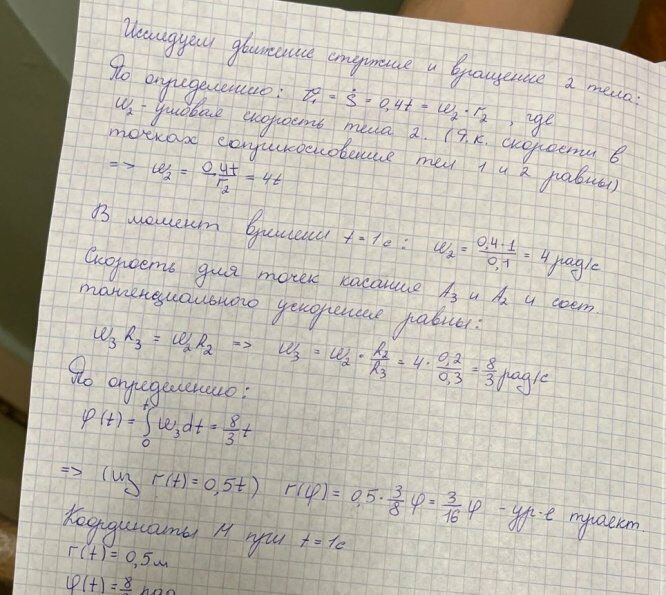 Исследуем движение стержня и вращение 2 тела:
По определению: v₁ = Ṡ = 0,4t = ω₂·r₂, где
ω₂ - угловая скорость тела 2. (Т.к. скорости в
точках соприкосновения тел 1 и 2 равны)
=> ω₂ = 0,4t/r₂ = 4t
В момент времени t = 1 c: ω₂ = 0,4·1/0,1 = 4 рад/с
Скорость для точек касания A₃ и A₂ и сост.
тангенциального ускорения равны:
ω₃R₃ = ω₂R₂ => ω₃ = ω₂·R₂/R₃ = 4·0,2/0,3 = 8/3 рад/с
По определению:
φ(t) = ∫₀ᵗ ω₃dt = 8/3 t
=> (из r(t) = 0,5t) r(φ) = 0,5·3/8 φ = 3/16 φ - ур-е траект.
Координаты M при t = 1c
r(t) = 0,5 м
φ(t) = 8/ рад